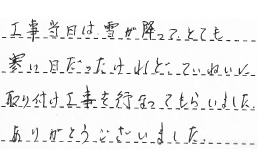 工事当日は雪が降って、とても
寒い日だったけれど、ていねいに
取り付け工事を行なってもらいました。
ありがとうございました。